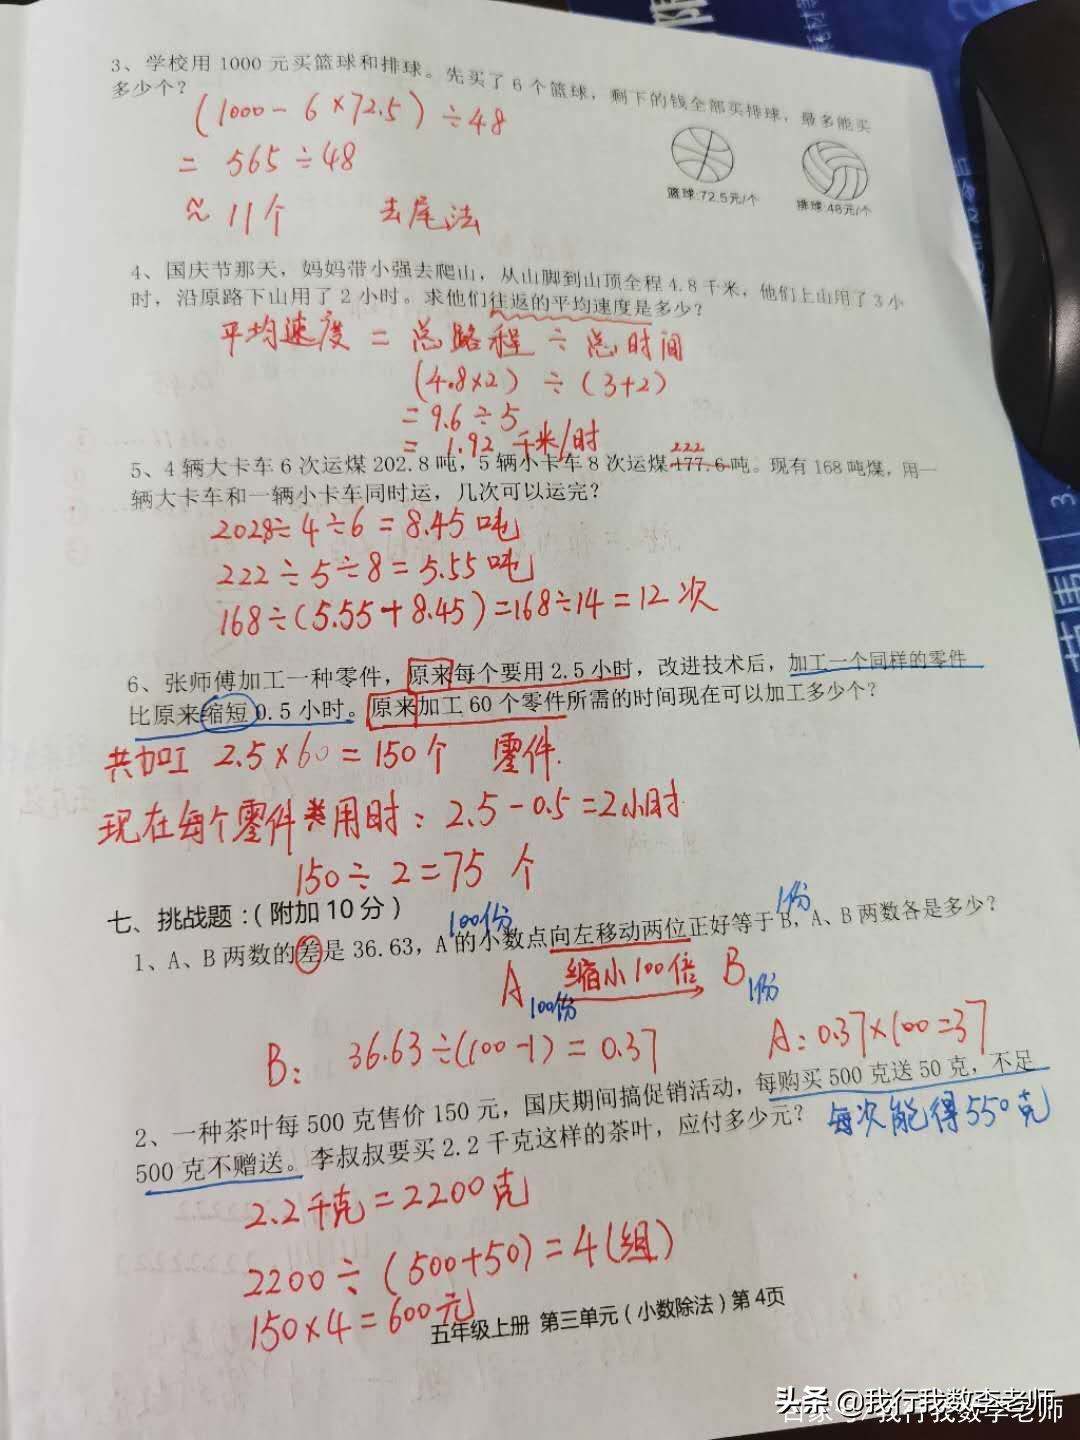 3、学校用 1000 元买篮球和排球。先买了 6 个篮球，剩下的钱全部买排球，最多能买
多少个？
(1000-6×72.5)÷48
=565÷48
≈11个 去尾法
篮球:72.5元/个 排球:48元/个
4、国庆节那天，妈妈带小强去爬山，从山脚到山顶全程 4.8 千米，他们上山用了 3 小
时，沿原路下山用了 2 小时。求他们往返的平均速度是多少？
平均速度 = 总路程 ÷ 总时间
(4.8×2) ÷ (3+2)
=9.6÷5
=1.92 千米/时
222
5、4 辆大卡车 6 次运煤 202.8 吨，5 辆小卡车 8 次运煤 177.6 吨。现有 168 吨煤，用一
辆大卡车和一辆小卡车同时运，几次可以运完？
202.8÷4÷6=8.45吨
222÷5÷8=5.55吨
168÷(5.55+8.45)=168÷14=12次
6、张师傅加工一种零件，原来每个要用 2.5 小时，改进技术后，加工一个同样的零件
比原来缩短 0.5 小时。原来加工 60 个零件所需的时间现在可以加工多少个？
共加工 2.5×60=150个 零件.
现在每个零件用时：2.5-0.5=2小时
150÷2=75 个
七、挑战题：（附加10分）
100份 1份
1、A、B 两数的差是 36.63，A 的小数点向左移动两位正好等于 B，A、B 两数各是多少？
A 缩小100倍 B
100份 1份
B： 36.63÷(100-1)=0.37 A：0.37×100=37
2、一种茶叶每 500 克售价 150 元，国庆期间搞促销活动，每购买 500 克送 50 克，不足
500 克不赠送。李叔叔要买 2.2 千克这样的茶叶，应付多少元？ 每次能得550克
2.2千克=2200克
2200÷(500+50)=4(组)
150×4=600元
五年级上册 第三单元（小数除法）第 4页
头条 @我行我数李老师
百家号/我行我数李老师